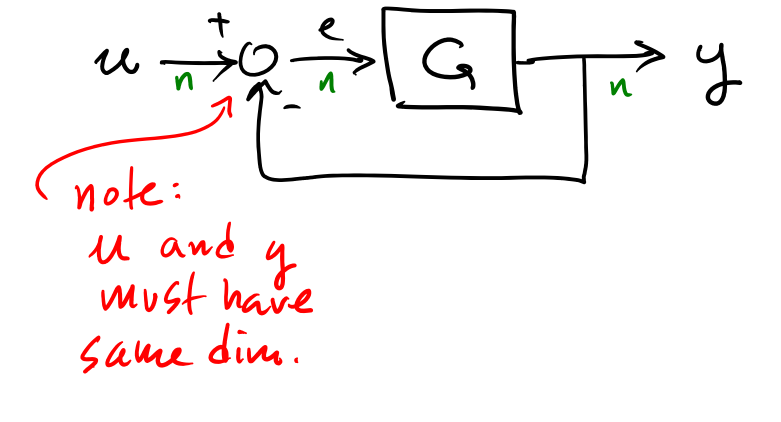 u + e G y
n n n
-
note:
u and y
must have
same dim.